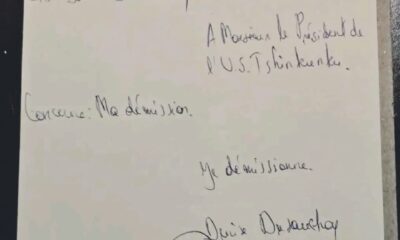 A Monsieur le Président de
l'U.S. Tshinkunku.
Concerne: Ma démission.
Je démissionne.